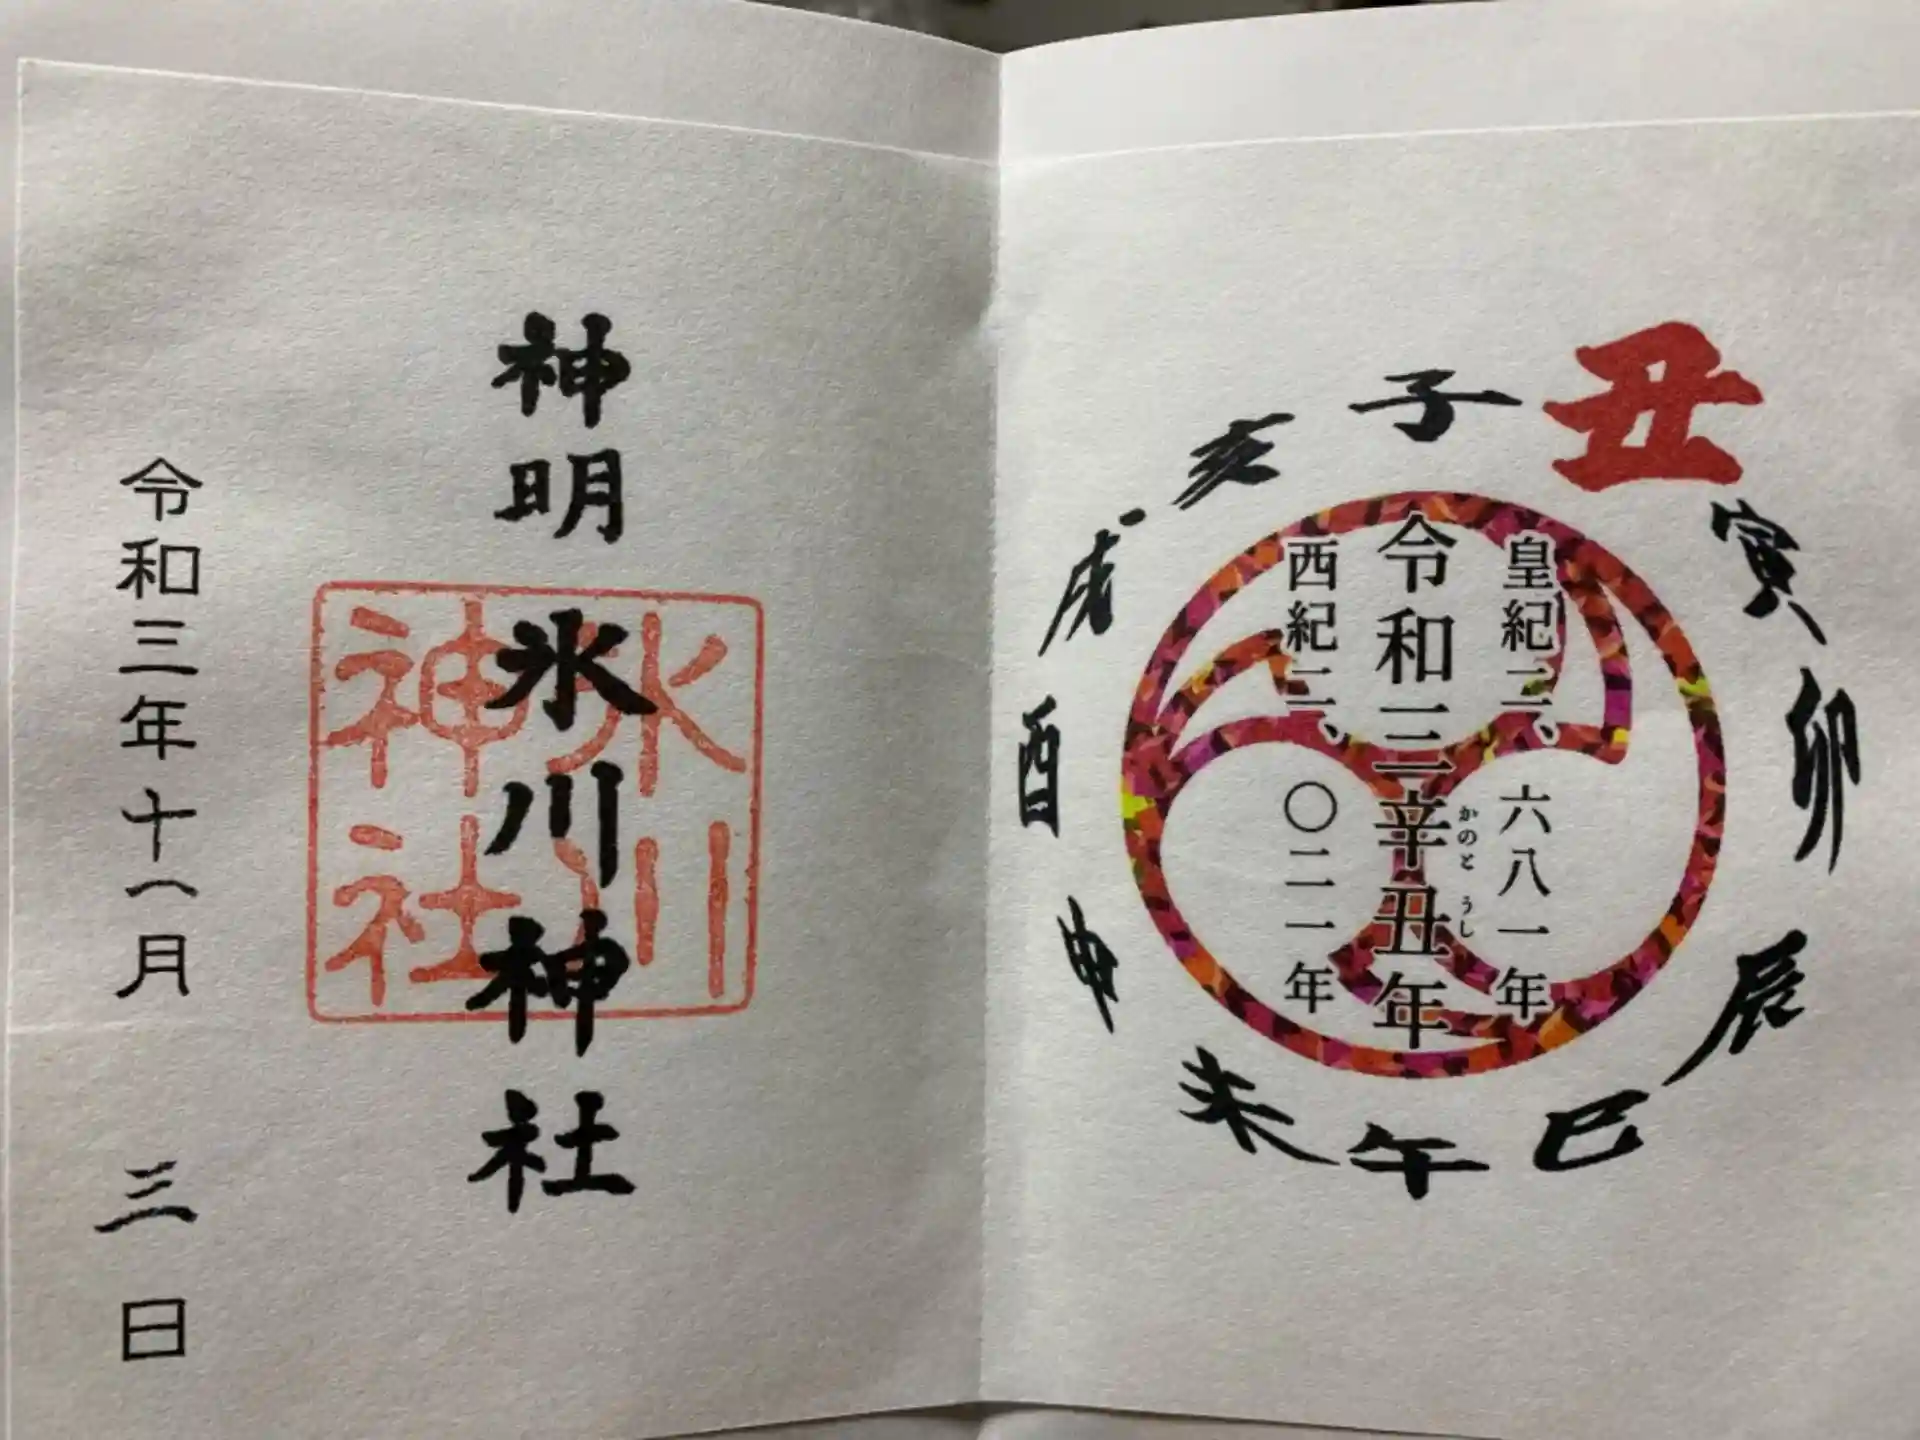 子
丑
寅
卯
辰
巳
午
未
申
酉
戌
亥
皇紀二、六八一年
令和三辛丑年
かのと うし
西紀二、〇二一年
神明 氷川神社
氷川
神社
令和三年十一月 三 日